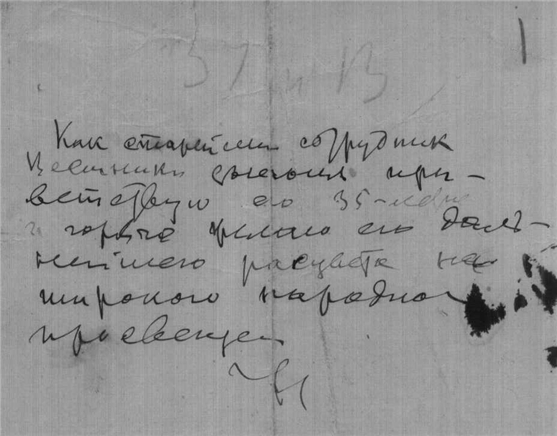 Как старейший сотрудник
Вестника знания при-
ветствую его 35-летие
и горячо желаю его даль-
нейшего расцвета на
широкого народного
просвещен